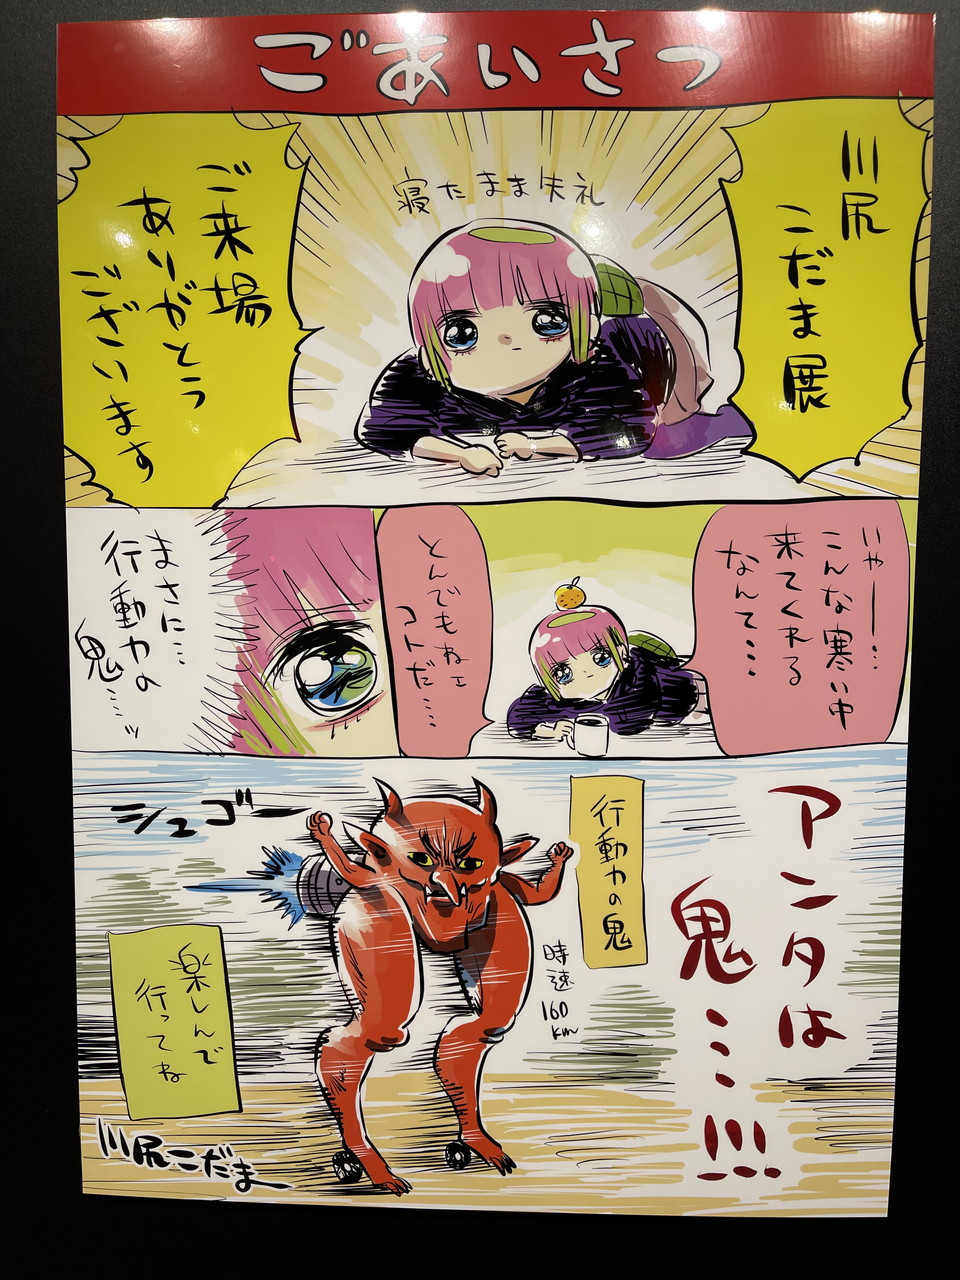 ごあいさつ
川尻
こだま展
寝たまま失礼
ご来場
ありがとう
ございます
いやー…
こんな寒い中
来てくれる
なんて…
とんでもねェ
コトだ…
まさに…
行動力の
鬼……ッ
アンタは
鬼…!!!
行動力の鬼
時速
160
km
シュゴー
楽しんで
行ってね
川尻こだま